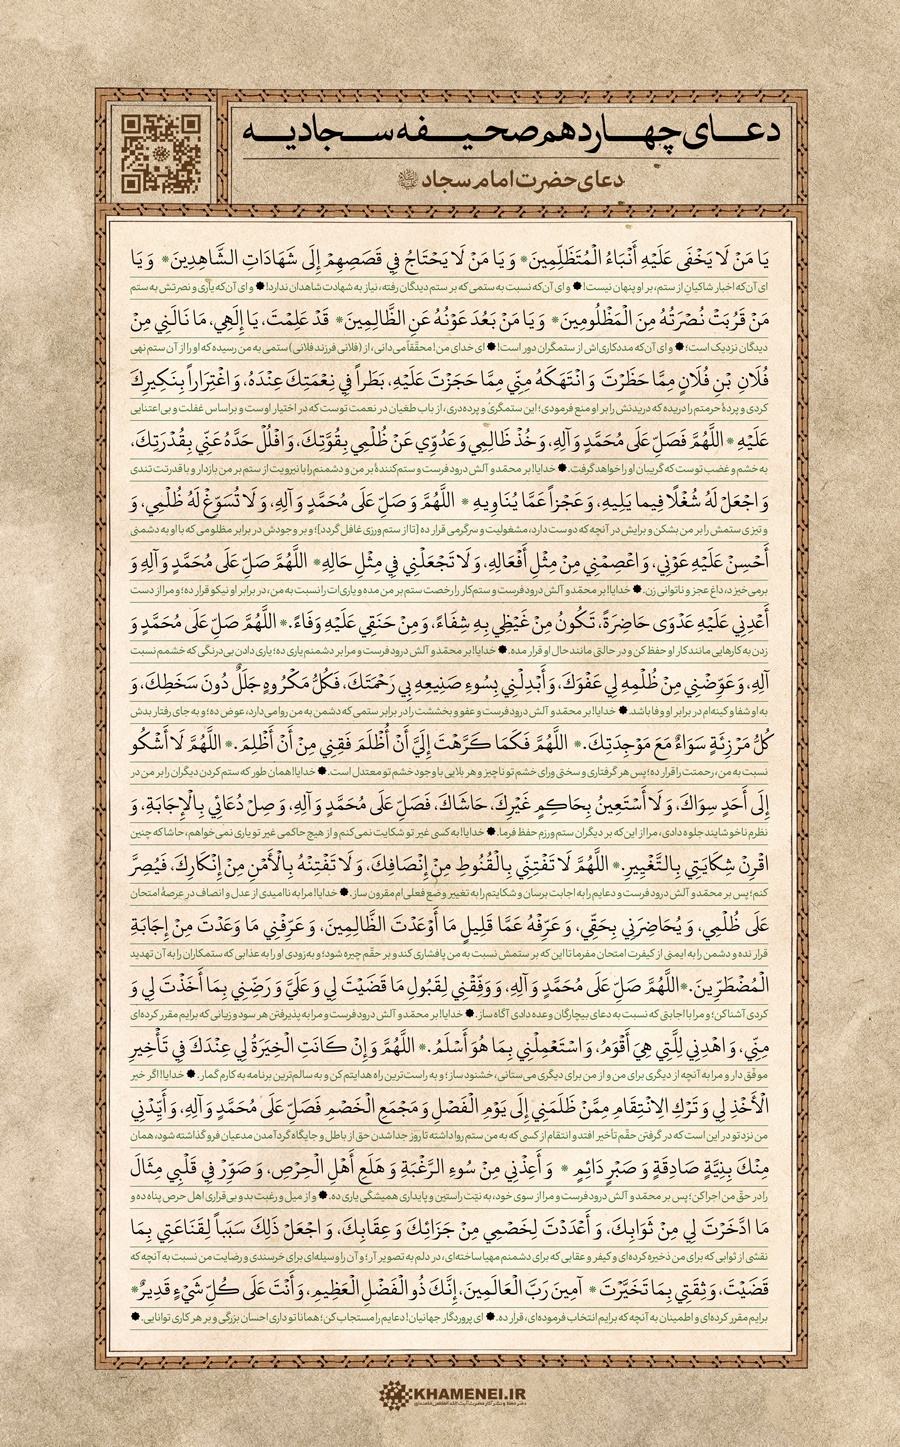 دعای چهاردهم صحیفه سجادیه
دعای حضرت امام سجاد
یَا مَنْ لَا یَخْفَی عَلَیْهِ أَنْبَاءُ الْمُتَظَلِّمِینَ * وَ یَا مَنْ لَا یَحْتَاجُ فِی قَصَصِهِمْ إِلَی شَهَادَاتِ الشَّاهِدِینَ * وَ یَا
ای آن‌که اخبار شاکیانِ از ستم، بر او پنهان نیست! و ای آن‌که نسبت به ستمی که بر ستم‌دیدگان رفته، نیاز به شهادت شاهدان ندارد! و ای آن‌که یاری و نصرتش به ستم
مَنْ قَرُبَتْ نُصْرَتُهُ مِنَ الْمَظْلُومِینَ * وَ یَا مَنْ بَعُدَ عَوْنُهُ عَنِ الظَّالِمِینَ * قَدْ عَلِمْتَ، یَا إِلَهِی، مَا نَالَنِی مِنْ
دیدگان نزدیک است؛ و ای آن‌که مددکاری‌اش از ستمگران دور است! ای خدای من! محقّقاً می‌دانی، از (فلانی فرزند فلانی) ستمی به من رسیده که او را از آن ستم نهی
فُلَانِ بْنِ فُلَانٍ مِمَّا حَظَرْتَ وَ انْتَهَکَهُ مِنِّی مِمَّا حَجَزْتَ عَلَیْهِ، بَطَراً فِی نِعْمَتِکَ عِنْدَهُ، وَ اغْتِرَاراً بِنَکِیرِکَ
کردی و پردهٔ حرمتم را دریده که دریدنش را بر او منع فرمودی؛ این ستمگری و پرده‌دری، از باب طغیان در نعمت توست که در اختیار اوست و براساس غفلت و بی‌اعتنایی
عَلَیْهِ * اللَّهُمَّ فَصَلِّ عَلَی مُحَمَّدٍ وَ آلِهِ، وَ خُذْ ظَالِمِی وَ عَدُوِّی عَنْ ظُلْمِی بِقُوَّتِکَ، وَ افْلُلْ حَدَّهُ عَنِّی بِقُدْرَتِکَ،
به خشم و غضب توست که گریبان او را خواهد گرفت. خدایا! بر محمّد و آلش درود فرست و ستم‌کنندهٔ بر من و دشمنم را با نیرویت از ستم بر من بازدار و با قدرتت تندی
وَ اجْعَلْ لَهُ شُغْلًا فِیما یَلِیهِ، وَ عَجْزاً عَمَّا یُنَاوِیهِ * اللَّهُمَّ وَ صَلِّ عَلَی مُحَمَّدٍ وَ آلِهِ، وَ لَا تُسَوِّغْ لَهُ ظُلْمِی، وَ
و تیزی ستمش را بر من بشکن و برایش در آنچه که دوست دارد، مشغولیت و سرگرمی قرار ده [تا از ستم‌ورزی غافل گردد]؛ و بر وجودش در برابر مظلومی که با او به دشمنی
أَحْسِنْ عَلَیْهِ عَوْنِی، وَ اعْصِمْنِی مِنْ مِثْلِ أَفْعَالِهِ، وَ لَا تَجْعَلْنِی فِی مِثْلِ حَالِهِ * اللَّهُمَّ صَلِّ عَلَی مُحَمَّدٍ وَ آلِهِ وَ
برمی‌خیزد، داغ عجز و ناتوانی زن. خدایا! بر محمّد و آلش درود فرست و ستم‌کار را رخصت ستم بر من مده و یاری‌ات را نسبت به من، در برابر او نیکو قرار ده؛ و مرا از دست
أَعْدِنِی عَلَیْهِ عَدْوَی حَاضِرَةً، تَکُونُ مِنْ غَیْظِی بِهِ شِفَاءً، وَ مِنْ حَنَقِی عَلَیْهِ وَفَاءً. * اللَّهُمَّ صَلِّ عَلَی مُحَمَّدٍ وَ
زدن به کارهایی مانند کار او حفظ کن و در حالتی مانند حال او قرار مده. خدایا! بر محمّد و آلش درود فرست و مرا بر دشمنم یاری ده؛ یاری دادن بی‌درنگی که خشمم نسبت
آلِهِ، وَ عَوِّضْنِی مِنْ ظُلْمِهِ لِی عَفْوَکَ، وَ أَبْدِلْنِی بِسُوءِ صَنِیعِهِ بِی رَحْمَتَکَ، فَکُلُّ مَکْرُوهٍ جَلَلٌ دُونَ سَخَطِکَ، وَ
به او شفا و کینه‌ام در برابر او وفا باشد. خدایا! بر محمّد و آلش درود فرست و عفو و بخششت را در برابر ستمی که دشمن به من روا می‌دارد، عوض ده؛ و به جای رفتار بدش
کُلُّ مَرْزِئَةٍ سَوَاءٌ مَعَ مَوْجِدَتِکَ. * اللَّهُمَّ فَکَمَا کَرَّهْتَ إِلَیَّ أَنْ أُظْلَمَ فَقِنِی مِنْ أَنْ أَظْلِمَ. * اللَّهُمَّ لَا أَشْکُو
نسبت به من، رحمتت را قرار ده؛ پس هر گرفتاری و سختی ورای خشم تو ناچیز و هر بلایی با وجود خشم تو معتدل است. خدایا! همان طور که ستم کردن دیگران را بر من در
إِلَی أَحَدٍ سِوَاکَ، وَ لَا أَسْتَعِینُ بِحَاکِمٍ غَیْرِکَ، حَاشَاکَ، فَصَلِّ عَلَی مُحَمَّدٍ وَ آلِهِ، وَ صِلْ دُعَائِی بِالْإِجَابَةِ، وَ
نظرم ناخوشایند جلوه دادی، مرا از این‌که بر دیگران ستم ورزم حفظ فرما. خدایا! به کسی غیر تو شکایت نمی‌کنم و از هیچ حاکمی غیر تو یاری نمی‌خواهم، حاشا که چنین
اقْرِنْ شِکَایَتِی بِالتَّغْیِیرِ. * اللَّهُمَّ لَا تَفْتِنِّی بِالْقُنُوطِ مِنْ إِنْصَافِکَ، وَ لَا تَفْتِنْهُ بِالْأَمْنِ مِنْ إِنْکَارِکَ، فَیُصِرَّ
کنم؛ پس بر محمّد و آلش درود فرست و دعایم را به اجابت برسان و شکایتم را به تغییر وضع فعلی‌ام مقرون ساز. خدایا! مرا به ناامیدی از عدل و انصاف در عرصهٔ امتحان
عَلَی ظُلْمِی، وَ یُحَاضِرَنِی بِحَقِّی، وَ عَرِّفْهُ عَمَّا قَلِیلٍ مَا أَوْعَدْتَ الظَّالِمِینَ، وَ عَرِّفْنِی مَا وَعَدْتَ مِنْ إِجَابَةِ
قرار نده و دشمن را به ایمنی از کیفرت امتحان مفرما تا این که بر ستمش نسبت به من پافشاری کند و بر حقّم چیره شود؛ و به‌زودی او را به عذابی که ستمکاران را به آن تهدید
الْمُضْطَرِّینَ. * اللَّهُمَّ صَلِّ عَلَی مُحَمَّدٍ وَ آلِهِ، وَ وَفِّقْنِی لِقَبُولِ مَا قَضَیْتَ لِی وَ عَلَیَّ وَ رَضِّنِی بِمَا أَخَذْتَ لِی وَ
کردی آشنا کن؛ و مرا با اجابتی که نسبت به دعای بیچارگان وعده دادی آگاه ساز. خدایا! بر محمّد و آلش درود فرست و مرا به پذیرفتن هر سود و زیانی که برایم مقرر کرده‌ای
مِنِّی، وَ اهْدِنِی لِلَّتِی هِیَ أَقْوَمُ، وَ اسْتَعْمِلْنِی بِمَا هُوَ أَسْلَمُ. * اللَّهُمَّ وَ إِنْ کَانَتِ الْخِیَرَةُ لِی عِنْدَکَ فِی تَأْخِیرِ
موفّق دار و مرا به آنچه از دیگری برای من و از من برای دیگری می‌ستانی، خشنود ساز؛ و به راست‌ترین راه هدایتم کن و به سالم‌ترین برنامه به کارم گمار. خدایا! اگر خیر
الْأَخْذِ لِی وَ تَرْکِ الِانْتِقَامِ مِمَّنْ ظَلَمَنِی إِلَی یَوْمِ الْفَصْلِ وَ مَجْمَعِ الْخَصْمِ فَصَلِّ عَلَی مُحَمَّدٍ وَ آلِهِ، وَ أَیِّدْنِی
من نزد تو در این است که در گرفتن حقّم تأخیر افتد و انتقام از کسی که به من ستم روا داشته تا روز جدا شدن حق از باطل و جایگاه گردآمدن مدعیان فرو گذاشته شود، همان
مِنْکَ بِنِیَّةٍ صَادِقَةٍ وَ صَبْرٍ دَائِمٍ * وَ أَعِذْنِی مِنْ سُوءِ الرَّغْبَةِ وَ هَلَعِ أَهْلِ الْحِرْصِ، وَ صَوِّرْ فِی قَلْبِی مِثَالَ
را در حقّ من اجرا کن؛ پس بر محمّد و آلش درود فرست و مرا از سوی خود، به نیّت راستین و پایداری همیشگی یاری ده. و از میل و رغبت بد و بی‌قراری اهل حرص پناه ده و
مَا ادَّخَرْتَ لِی مِنْ ثَوَابِکَ، وَ أَعْدَدْتَ لِخَصْمِی مِنْ جَزَائِکَ وَ عِقَابِکَ، وَ اجْعَلْ ذَلِکَ سَبَباً لِقَنَاعَتِی بِمَا
نقشی از ثوابی که برای من ذخیره کرده‌ای و کیفر و عقابی که برای دشمنم مهیا ساخته‌ای، در دلم به تصویر آر؛ و آن را وسیله‌ای برای خرسندی و رضایت من نسبت به آنچه که
قَضَیْتَ، وَ ثِقَتِی بِمَا تَخَیَّرْتَ * آمِینَ رَبَّ الْعَالَمِینَ، إِنَّکَ ذُو الْفَضْلِ الْعَظِیمِ، وَ أَنْتَ عَلَی کُلِّ شَیْءٍ قَدِیرٌ *
برایم مقرر کرده‌ای و اطمینان به آنچه که برایم انتخاب فرموده‌ای، قرار ده. ای پروردگار جهانیان! دعایم را مستجاب کن؛ همانا تو دارای احسان بزرگی و بر هر کاری توانایی.
KHAMENEI.IR